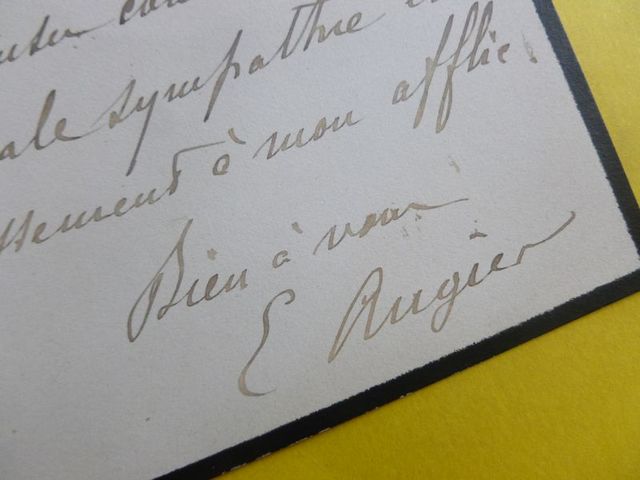 ale sympathie
ssement à mon afflic.
Bien à vous
E Augier